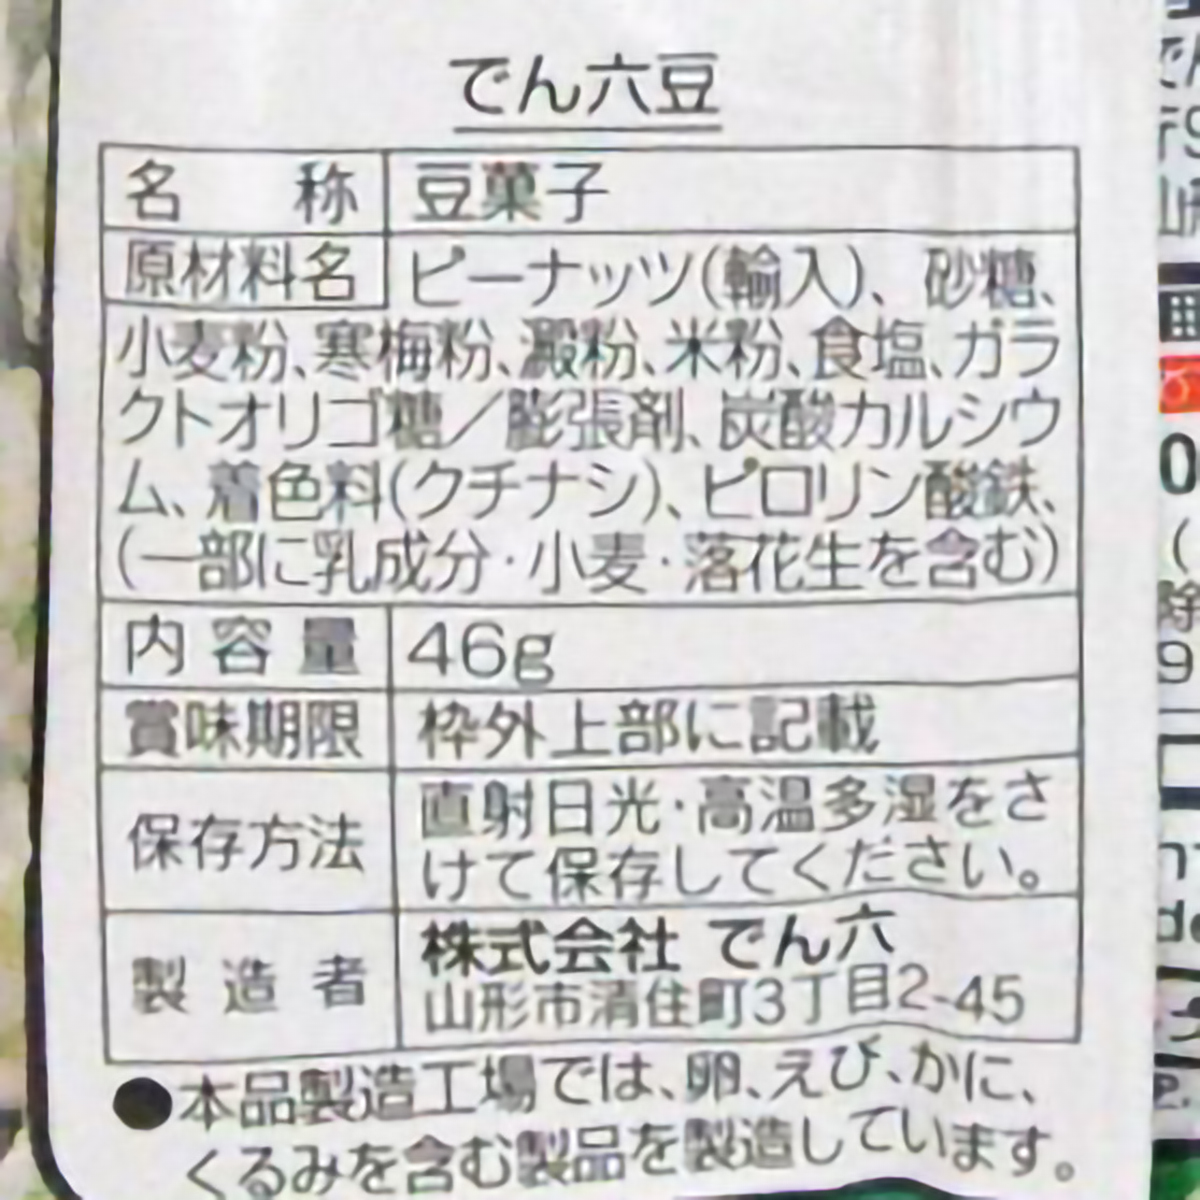 でん六豆
名称 豆菓子
原材料名 ピーナッツ(輸入)、砂糖、
小麦粉、寒梅粉、澱粉、米粉、食塩、ガラ
クトオリゴ糖／膨張剤、炭酸カルシウ
ム、着色料(クチナシ)、ピロリン酸鉄、
(一部に乳成分・小麦・落花生を含む)
内容量 46g
賞味期限 枠外上部に記載
保存方法 直射日光・高温多湿をさ
けて保存してください。
製造者 株式会社 でん六
山形市清住町3丁目2-45
●本品製造工場では、卵、えび、かに、
くるみを含む製品を製造しています。